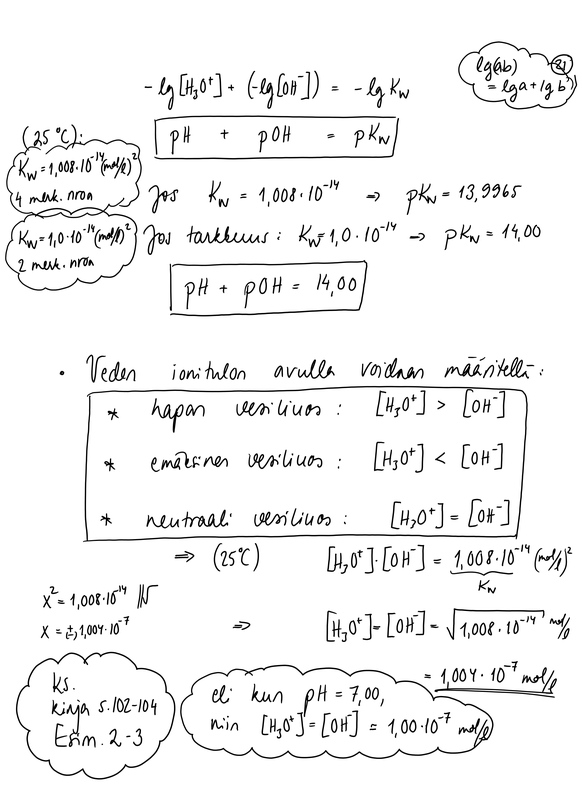 lg(ab)
= lga + lgb
-lg[H₃O⁺] + (-lg[OH⁻]) = -lg Kw
pH + pOH = pKw
(25 °C):
Kw = 1,008·10⁻¹⁴ (mol/l)²
4 merk. nron
Jos Kw = 1,008·10⁻¹⁴ ⇒ pKw = 13,9965
Kw = 1,0·10⁻¹⁴ (mol/l)²
2 merk. nron
Jos tarkkuus: Kw = 1,0·10⁻¹⁴ ⇒ pKw = 14,00
pH + pOH = 14,00
• Veden ionitulon avulla voidaan määritellä:
* hapan vesiliuos: [H₃O⁺] > [OH⁻]
* emäksinen vesiliuos: [H₃O⁺] < [OH⁻]
* neutraali vesiliuos: [H₃O⁺] = [OH⁻]
⇒ (25°C) [H₃O⁺]·[OH⁻] = 1,008·10⁻¹⁴ (mol/l)²
Kw
x² = 1,008·10⁻¹⁴ ||√
x = (±) 1,004·10⁻⁷
⇒ [H₃O⁺] = [OH⁻] = √1,008·10⁻¹⁴ mol/l
= 1,004·10⁻⁷ mol/l
Ks.
kirja s.102-104
Esim. 2-3
eli kun pH = 7,00,
niin [H₃O⁺] = [OH⁻] = 1,00·10⁻⁷ mol/l